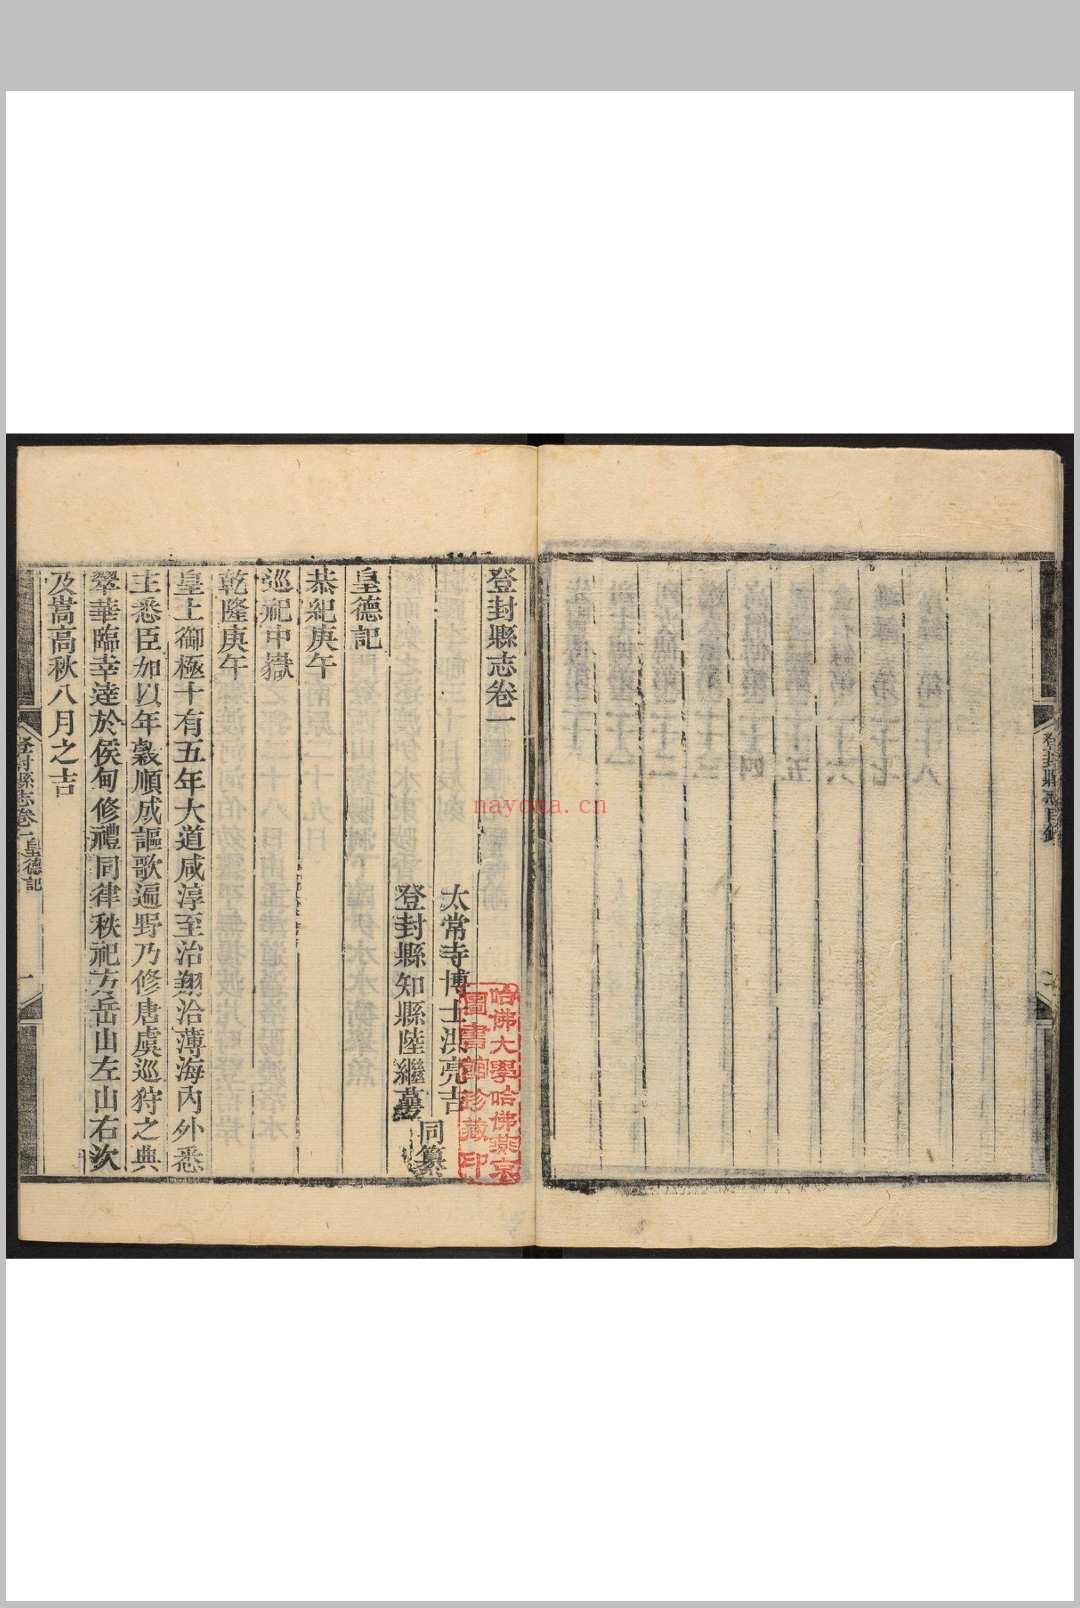 登封縣志目錄
登封縣志卷一
太常寺博士洪亮吉
登封縣知縣陸繼萼
同纂
皇德記
恭紀庚午
巡祀中嶽
乾隆庚午
皇上御極十有五年大道咸淳至治翔洽薄海內外悉
主悉臣加以年穀順成謳歌遍野乃修唐虞巡狩之典
翠華臨幸達於侯甸修禮同律秩祀方岳山左山右次
及嵩高秋八月之吉
登封縣志卷一
皇德記
一
哈佛大學哈佛燕京
圖書館珍藏印
nayona.cn